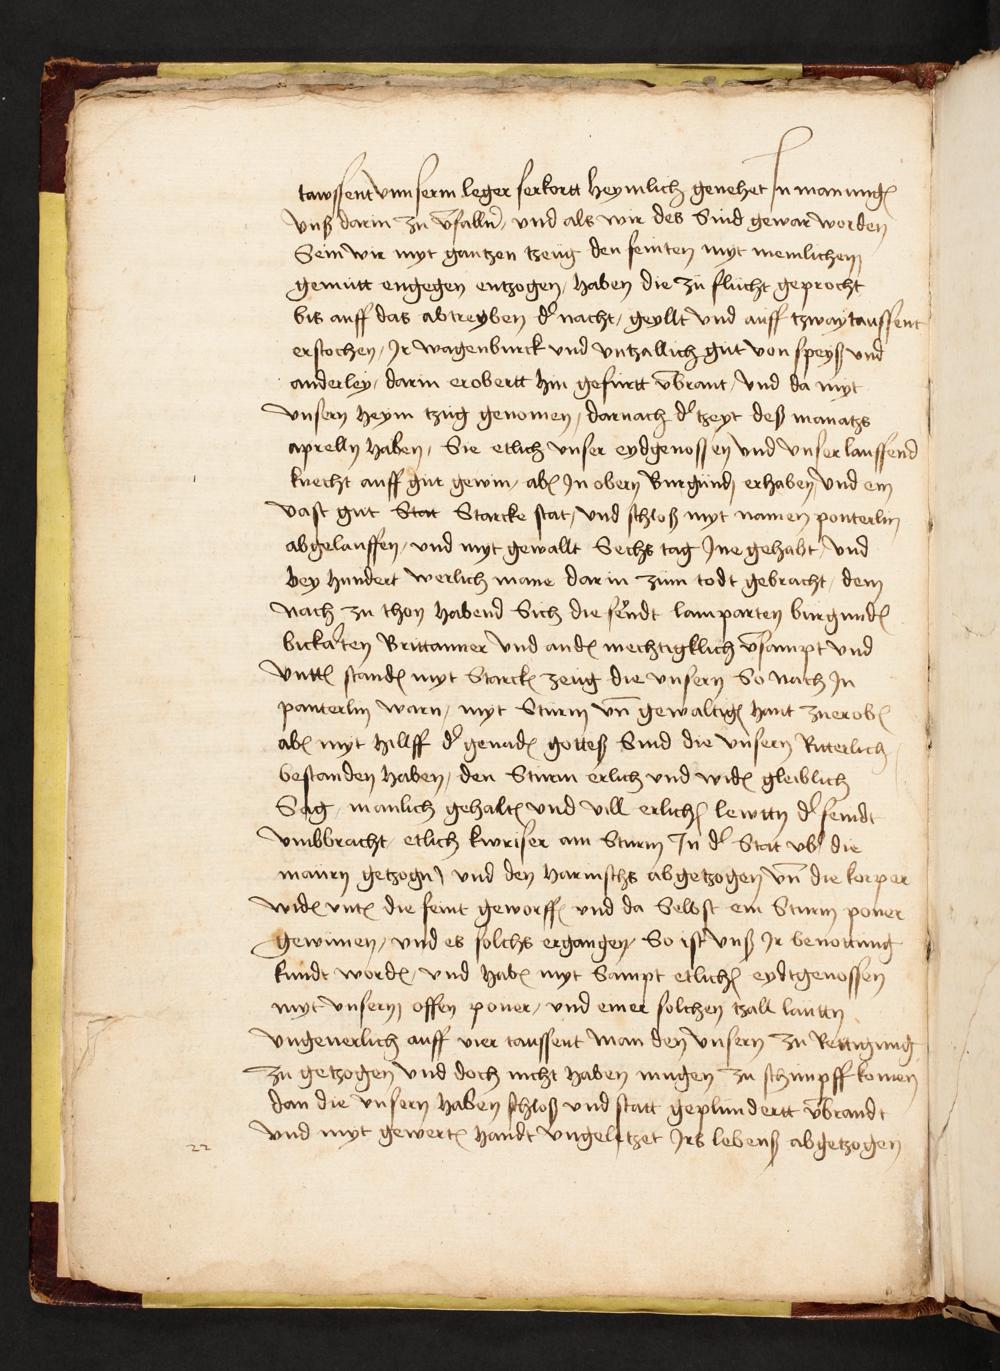 tawssent unnserm leger ferkortt heymlich genehet In manung
vnß darin zu v̄falln, vnd als wir des Sind gewar worden
Sein wir myt gantzen tzeug den feinten myt menlichem
gemutt engegen entzogen, haben die zu flucht geprocht
bis auff das abtreyben dˢ nacht, geyllt vnd auff tzway taussent
erstochen, Ir wagenburck vnd vntzallich gut von speyß vnd
anderley, darin erobertt hin gefurtt v̄brant, vnd da myt
vnsern heym tzug genomen, darnach dˢ tzeyt deß manatzs
aprelln haben, Sie etlich vnser eydgenossen vnd vnser lauffend
knecht auff gut gewin, abˢ In obern Burgund, erhaben vnd ein
vast gut Stat Starcke stat, vnd schloß myt namen ponterlin
abgelauffen, vnd myt gewallt Sechs tag Jne gehabt, vnd
bey hundert werlich mane darin zum todt gebracht, dem
nach zu thon habend Sich die feindt lamparten burgundˢ
bickarten Brittanner vnd andˢ mechtigklich v̄sampt vnd
vnttˢ standˢ myt Starckˢ zeug die vnsern So nach In
panterlin warn, myt Sturm vn̄ gewaltigˢ hant zuerobˢ
abˢ myt hillff dˢ genadˢ gotteß Sind die vnsern Ritterlich
bestanden haben, den Sturm erlich vnd widˢ gleiblich
Sag, manlich gehaltˢ vnd vill erlichˢ lewttn dˢ feindt
vmbbracht, etlich kwriser am Sturm In dˢ Stat vbˢ die
maurn getzogn vnd den harnischs abgetzogen vn̄ die korper
widˢ vntˢ die feint geworffˢ vnd da Selbst ein Sturm poner
gewinnen, vnd es solchs ergangen, So ist vnß Ir benottung
kundt wordˢ, vnd habˢ myt Sampt etlichˢ eydtgenossen
myt vnserm offen poner, vnd einer solchen tzall lauttn
vngeuerlich auff vier taussent man den vnsern zu Rettigung
zu getzogen vnd doch nicht haben mugen zu schimpff komen
dan die vnsern haben schloß vnd statt geplundertt v̄brandt
vnd myt gewertˢ handt vngeletzet Irs lebenß abgetzogen
22